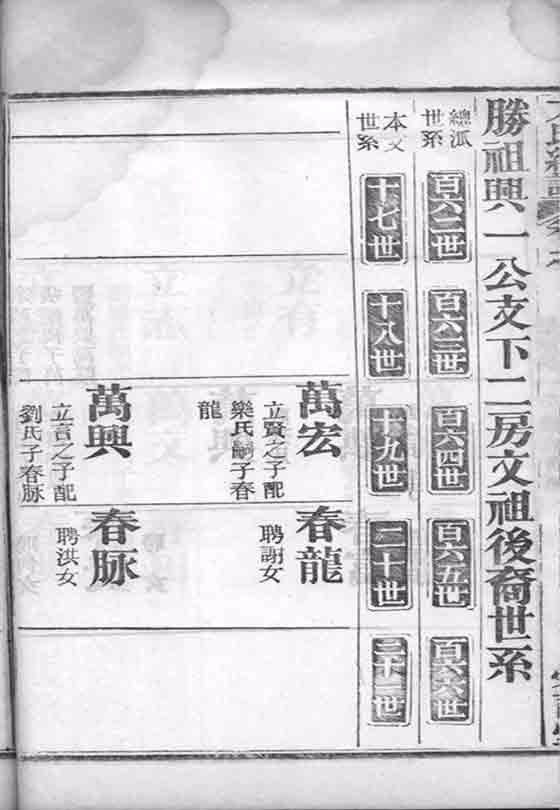 勝祖興一公支下二房文祖後裔世系
總派
世系
百六二世
百六三世
百六四世
百六五世
百六六世
本支
世系
十七世
十八世
十九世
二十世
二十一世
萬宏
立賢之子配
欒氏嗣子春
龍
萬興
立言之子配
劉氏子春脉
春龍
聘謝女
春脉
聘洪女